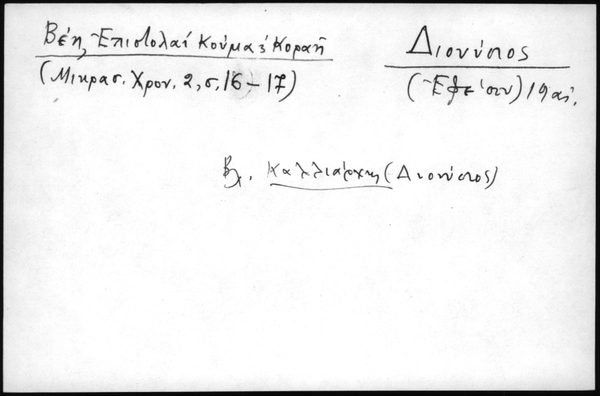 Βέη, Ἐπιστολαί Κούμα & Κοραῆ
(Μικρασ. Χρον. 2, σ. 16-17)
Διονύσιος
(Ἐφέσου) 19 αἰ.
Βλ. Καλλιάρχης (Διονύσιος)